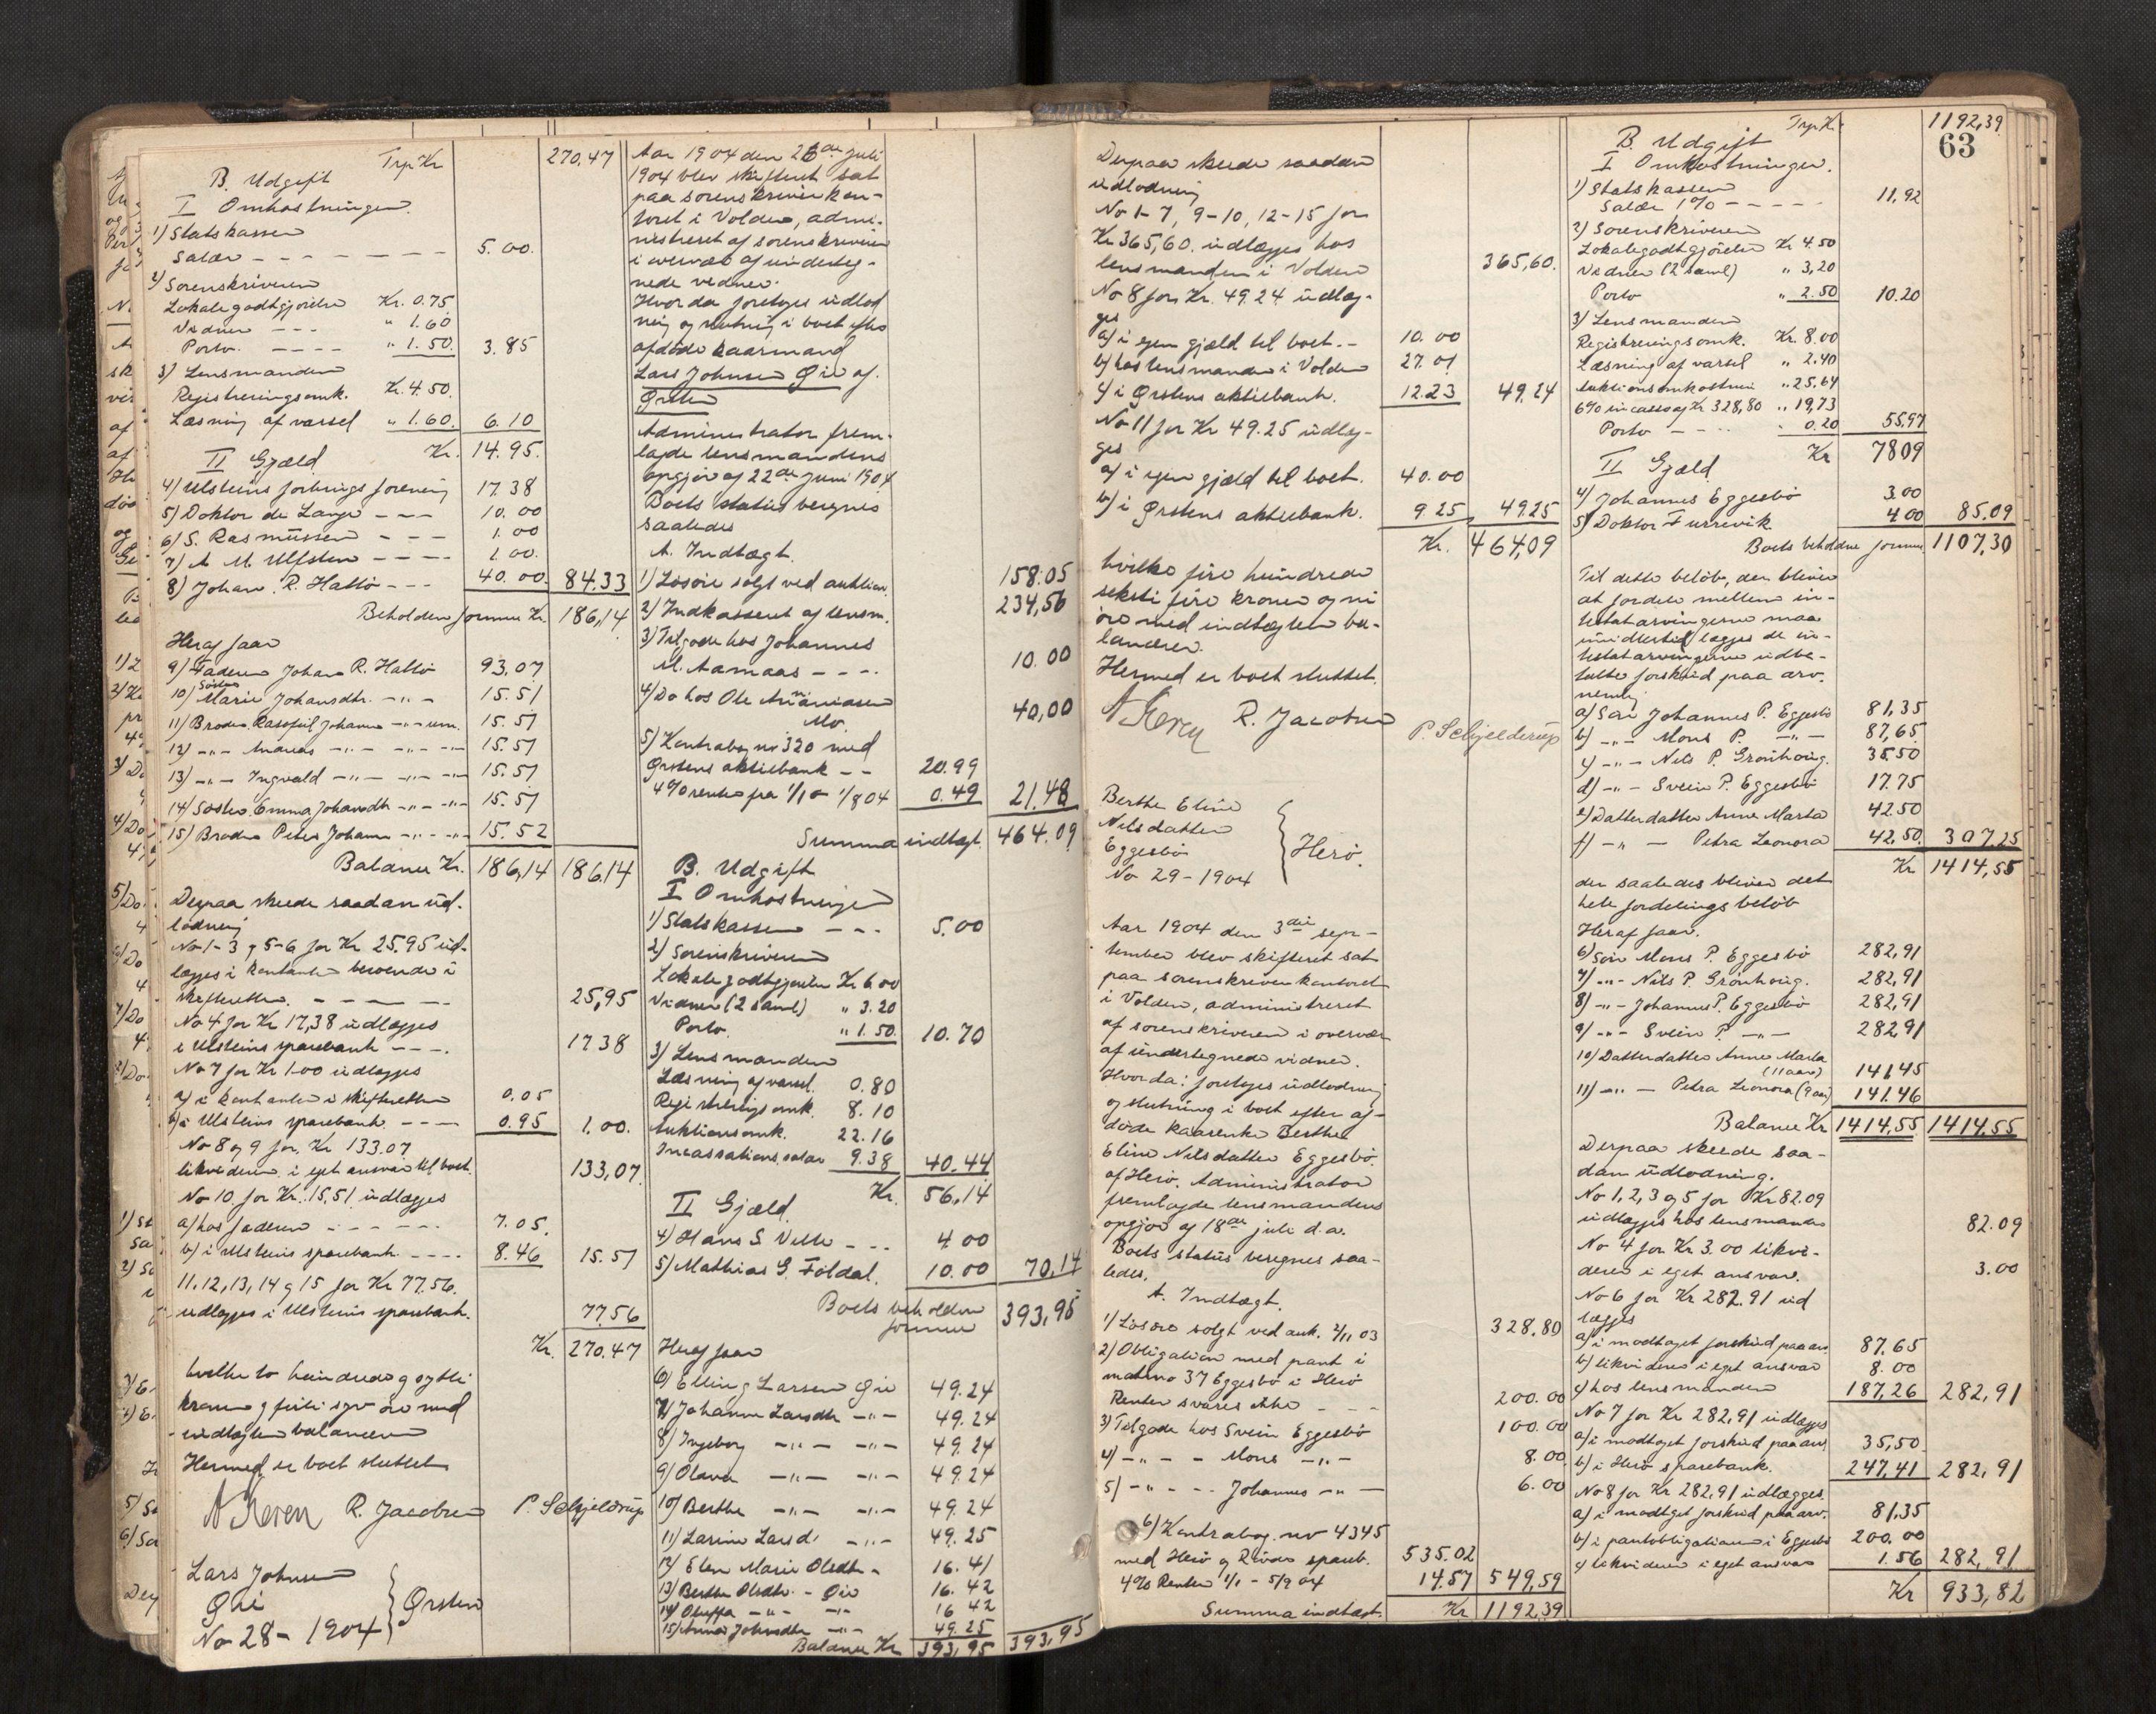 Trp Kr 270.47
B. Udgift
I Omkostninger.
1) Statskassen
Salær - - - - - - - 5.00.
2) Sorenskriveren
Lokalegodtgjörelse Kr. 0.75
Vidner - - - " 1.60
Porto. - - - - " 1.50. 3.85
3) Lensmanden
Registreringsomk. Kr. 4.50.
Læsning af varsel " 1.60. 6.10
II Gjæld Kr. 14.95.
4) Ulsteins forbrugsforening 17.38
5) Doktor de Lange - - - 10.00
6) S. Rasmüssen - - - 1.00
7) A. M. Ulfsten - - - - 1.00.
8) Johan R. Hallö - - - 40.00. 84.33
Beholden formue Kr. 186,14
Heraf faar
9) Faderen Johan R. Hallö 93,07
10) Söster Marie Johansdtr. - " - 15.51
11) Broder Johan - " - um. 15.51
12) - " - Ananias - " - - " - 15.51
13) - " - Ingvald - " - - " - 15.51
14) Söster Emma Johansdtr - " - - " - 15.51
15) Broder Peter Johan - " - - " - 15.52
Balance Kr. 186,14 186.14
Derpaa skeede saadan üd-
lodning
No 1-3 & 5-6 for Kr 25.95 üd-
lægges i kontanter beroende i
skifteretten. - - - - - 25,95
No 4 for Kr 17,38 üdlægges
i Ulsteins sparebank - - - . 17.38
No 7 for Kr 1.00 üdlægges
a) i kontanter i skifteretten 0.05
b) i Ulsteins sparebank. - - - 0.95 1.00.
No 8 og 9 for Kr 133.07
likviderer i eget ansvar til boet. 133,07.
No 10 for Kr. 15.51 üdlægges
a) hos faderen - - - - - 7.05.
b) i Ulsteins sparebank. - - - - 8.46 15.51
11, 12, 13, 14 & 15 for Kr 77.56.
üdlægges i Ulsteins sparebank. 77.56
Kr. 270.47
hvilke to hündrede og sytti
kroner & firti syv öre med
indtægten balancerer
Hermed er boet sluttet
R. Jacobsen P. Schjelderüp
Lars Johnsen
Öie
No 28 - 1904
Örsten
Aar 1904 den 26de juli
1904 blev skifteret sat
paa sorenskriverkon-
toret i Volden, admi-
nistreret af sorenskriveren
i overvær af underteg-
nede vidner.
Hvorda foretoges üdlod
ning og slutning i boet efter
afdöde kaarmand
Lars Johnsen Öie af
Örsten
Administrator frem-
lagde lensmandens
opgjör af 22de juni 1904
Boets status beregnes
saaledes
A. Indtægt.
1) Lösöre solgt ved auktion. 158.05
2) Indkasseret af lensm. 234,56
3) Tilgode hos Johannes
M. Aamaas - - - - 10.00
4) Do hos Ole Ananiasen
Mo. 40,00
5) Kontrabog nr 320 med
Örstens aktiebank - - 20.99
4% renter fra 1/1 - 1/8 04 0.49 21.48
Summa indtægt. 464.09
B. Udgift
I Omkostninger
1) Statskassen - - - 5.00
2) Sorenskriveren
Lokalegodtgjörelse Kr 6.00
Vidner (2 saml) " 3.20
Porto. " 1.50. 10.70
3) Lensmanden
Læsning af varsel. 0.80
Registreringsomk. 8.10
Auktionsomk. 22.16
Incassationssalær 9.38 40.44
Kr. 56,14
II Gjæld.
4) Hans S. Velle - - - 4.00
5) Mathias G. Foldal. 10.00 70,14
Boets beholden
formue 393,95
Heraf faar
6) Elling Larsen Öie 49.24
7) Johanne Larsdtr - " - 49.24
8) Ingeborg - " - - " - 49.24
9) Olava - " - - " - 49.24
10) Berthe - " - - " - 49.24
11) Larine Larsd. - " - 49.25
12) Elen Marie Olsdtr - 16.41
13) Berthe Olsdtr. - Öie 16.42
14) Oluffa - " - - " - 16 42
15) Anna Johnsdtr - " - 49.25
Balance Kr 393,95 393,95
Derpaa skeede saadan
üdlodning
No 1-7, 9-10, 12-15 for
Kr 365,60. üdlægges hos
lensmanden i Volden 365,60.
No 8 for Kr. 49.24 üdlæg-
ges
a) i egen gjæld til boet. - 10.00
b) hos lensmanden i Volden 27.01
c) i Örstens aktiebank. 12.23 49.24
No 11 for Kr 49.25 üdlæg-
ges
a) i egen gjæld til boet. 40.00
b) i Örstens aktiebank. 9.25 49.25
Kr. 464,09
hvilke fire hündrede
seksti fire kroner og ni
öre med indtægten ba-
lancerer.
Hermed er boet sluttet.
R. Jacobsen P. Schjelderüp
Berthe Eline
Nilsdatter
Eggesbö
No 29 - 1904
Herö.
Aar 1904 den 3die sep-
tember blev skifteret sat
paa sorenskriverkontoret
i Volden, administreret
af sorenskriveren i overvær
af undertegnede vidner.
Hvorda: foretoges üdlodning
og slutning i boet efter af-
döde kaarenke Berthe
Eline Nilsdatter Eggesbö
af Herö. Administrator
fremlagde lensmandens
opgjör af 18de juli d.a.
Boets status beregnes saa-
ledes.
A. Indtægt.
1) Lösöre solgt ved auk. 2/11 03 328.80
2) Obligation med pant i
matrno 37 Eggesbö i Herö 200.00
Renter svares ikke - - -
3) Tilgode hos Svein Eggesbö 100.00
4) - " - - Mons - " - 8.00
5) - " - - - Johannes - " - 6.00
6) Kontrabog nr 4345
med Herö og Rövde spareb. 535.02
4% Renter 1/1 - 5/9 04 14.57 549,59
Summa indtægt. Kr 1192,39
Trp Kr. 1192,39
63
B. Udgift
I Omkostninger.
1) Statskassen
Salær 1% - - - - - 11,92
2) Sorenskriveren
Lokalegodtgjörelse Kr 4.50
Vidner (2 saml) " 3,20
Porto " 2.50 10.20
3) Lensmanden
Registreringsomk. Kr. 8.00
Læsning af varsel " 2.40
Auktionsomkostnin " 25.64
6% incasso af Kr 328,80 " 19,73
Porto - - - - " 0.20 55.97
II Gjæld Kr 78 09
4) Johannes Eggesbö 3.00
5) Doktor Furrevik 4 00 85.09
Boets beholdne formue 1107,30
Til dette belöb, der bliver
at fordele mellem in-
testatarvingerne maa
imidlertid lægges de in-
testatarvingerne udbe-
talte forskud paa arv.
nemlig
a) Sön Johannes P. Eggesbö 81,35
b) - " - Mons P. - " - 87,65
c) - " - Nils P. Grönhoug. 35.50
d) - " - Svein P. Eggesbö 17.75
e) Datterdatter Anne Marta 42.50
f) - " - Petra Leonora 42,50. 307,25
Kr 1414,55
der saaledes bliver det
hele fordelingsbelöb
Heraf faar.
6) Sön Mons P. Eggesbö 282,91
7) - " - Nils P. Grönhoug. 282,91
8) - " - Johannes P. Eggesbö 282,91
9) - " - Svein P. - " - 282,91
10) Datterdatter Anne Marta
(11 aar) 141,45
11) - " - Petra Leonora (9 aar) 141.46
Balance Kr 1414,55 1414,55
Derpaa skeede saa-
dan üdlodning.
No 1, 2, 3 og 5 for Kr 82.09
üdlægges hos lensmanden 82.09
No 4 for Kr 3.00 likvi-
derer i eget ansvar. 3.00
No 6 for Kr 282.91 üd
lægges
a) i modtaget forskud paa arv. 87.65
b) likviderer i eget ansvar 8.00
c) hos lensmanden 187,26 282,91
No 7 for Kr 282,91 üdlægges
a) i modtaget forskud paa arv. 35,50
b) i Herö sparebank. 247,41 282,91
No 8 for Kr 282,91 üdlægges
a) i modtaget forskud paa arv. 81,35
b) i pantobligationen i Eggesbö 200.00
c) likviderer i eget ansvar 1.56 282,91
Kr 933,82